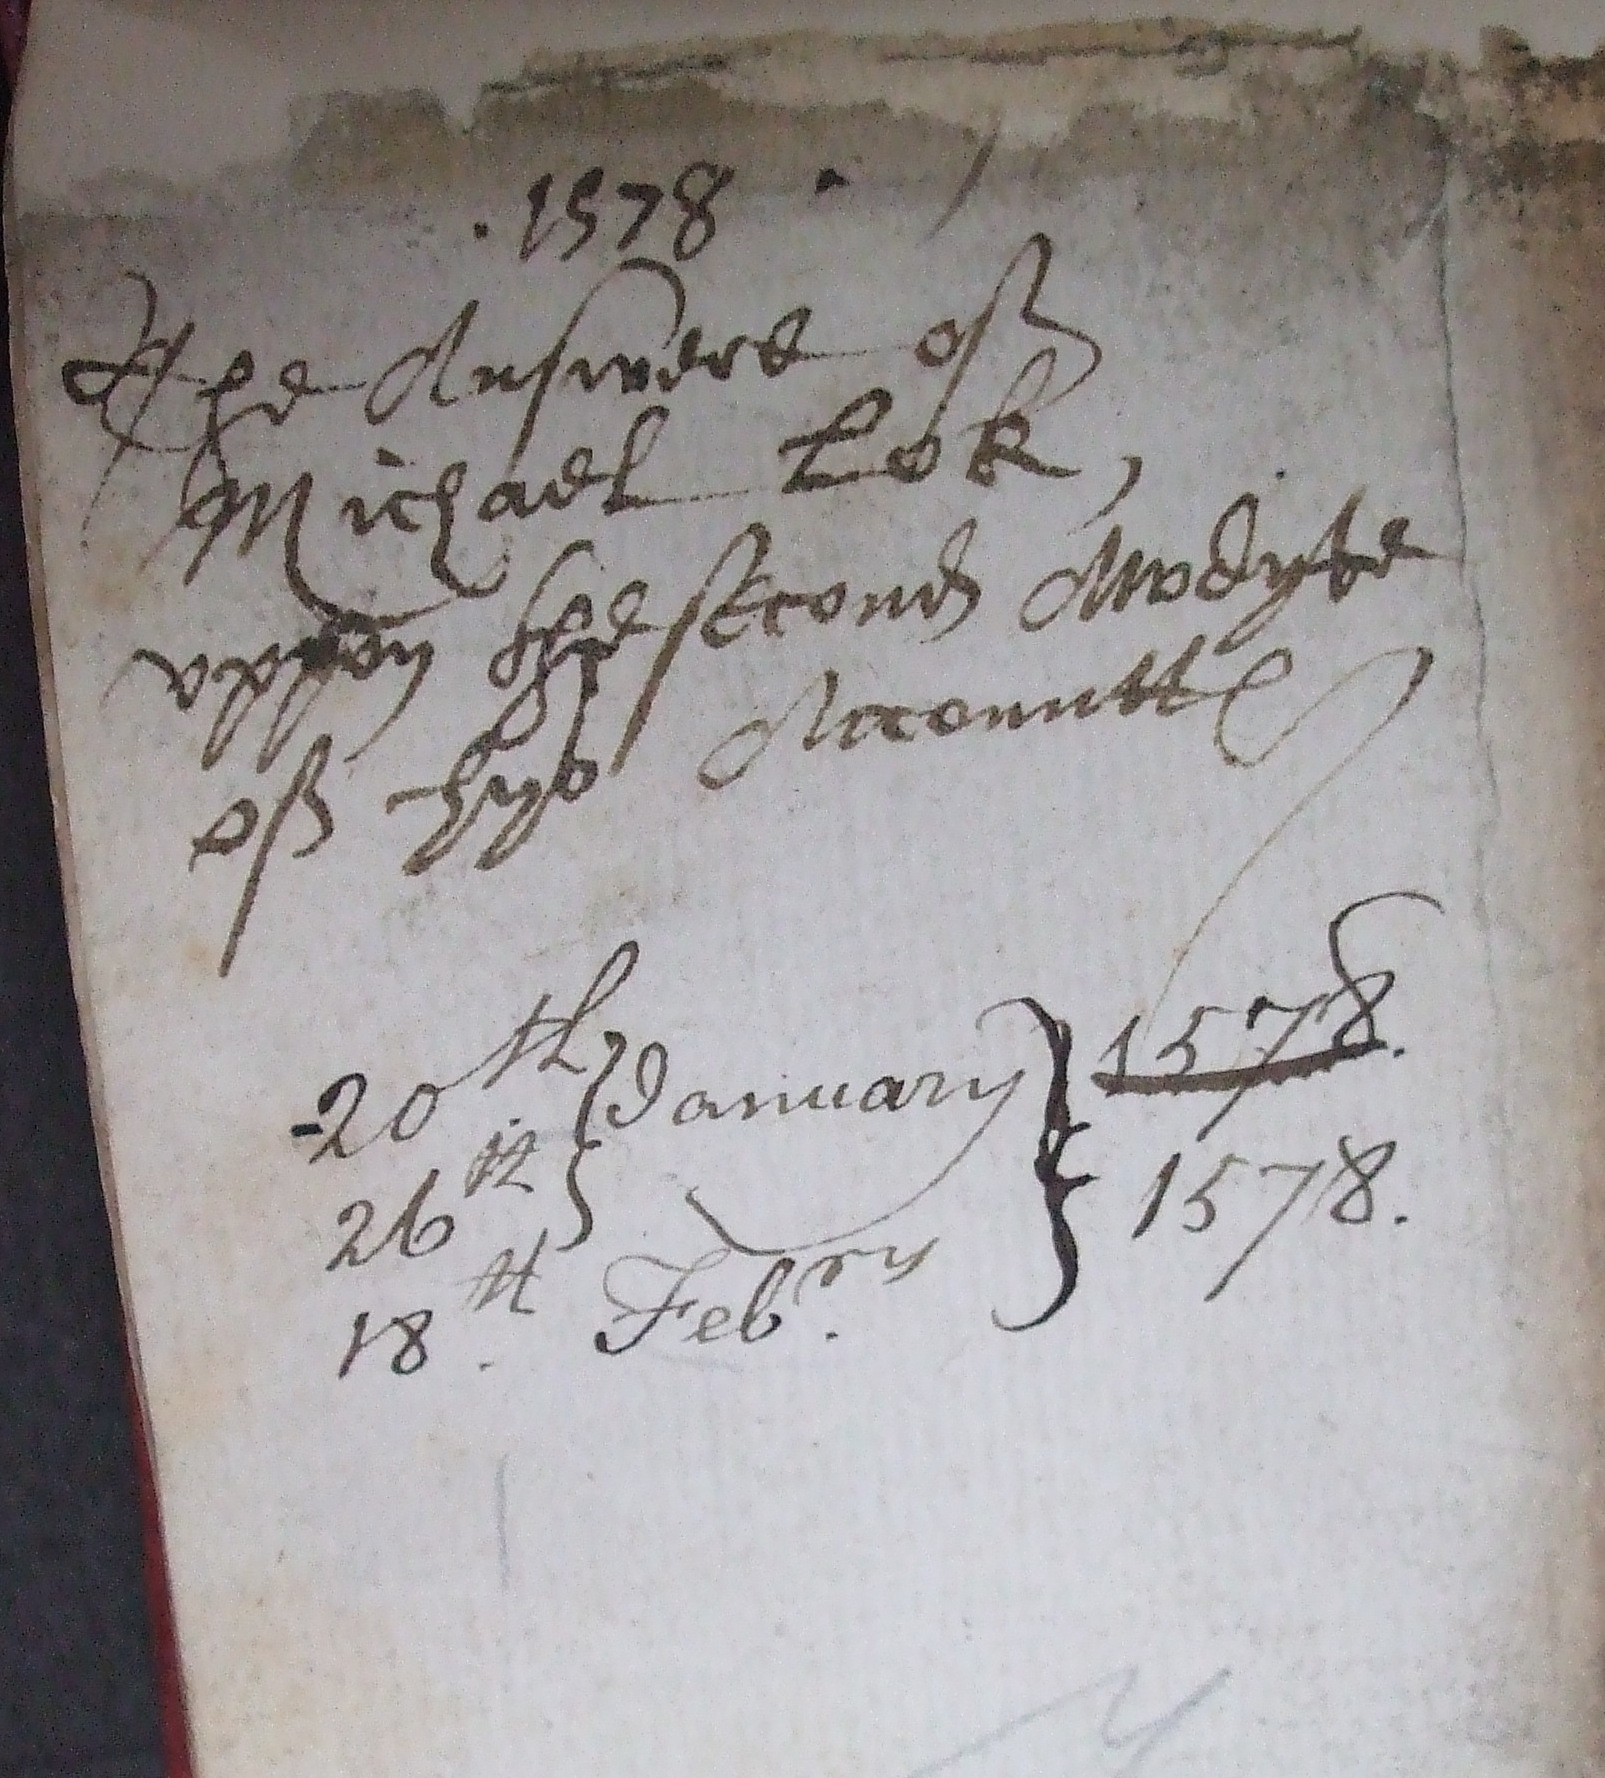 .1578.
The Answere of
Michael Lok,
uppon the second Awdyte
of hys Accountes
20th January } 1578.
26th
18th. Febry. } 1578.